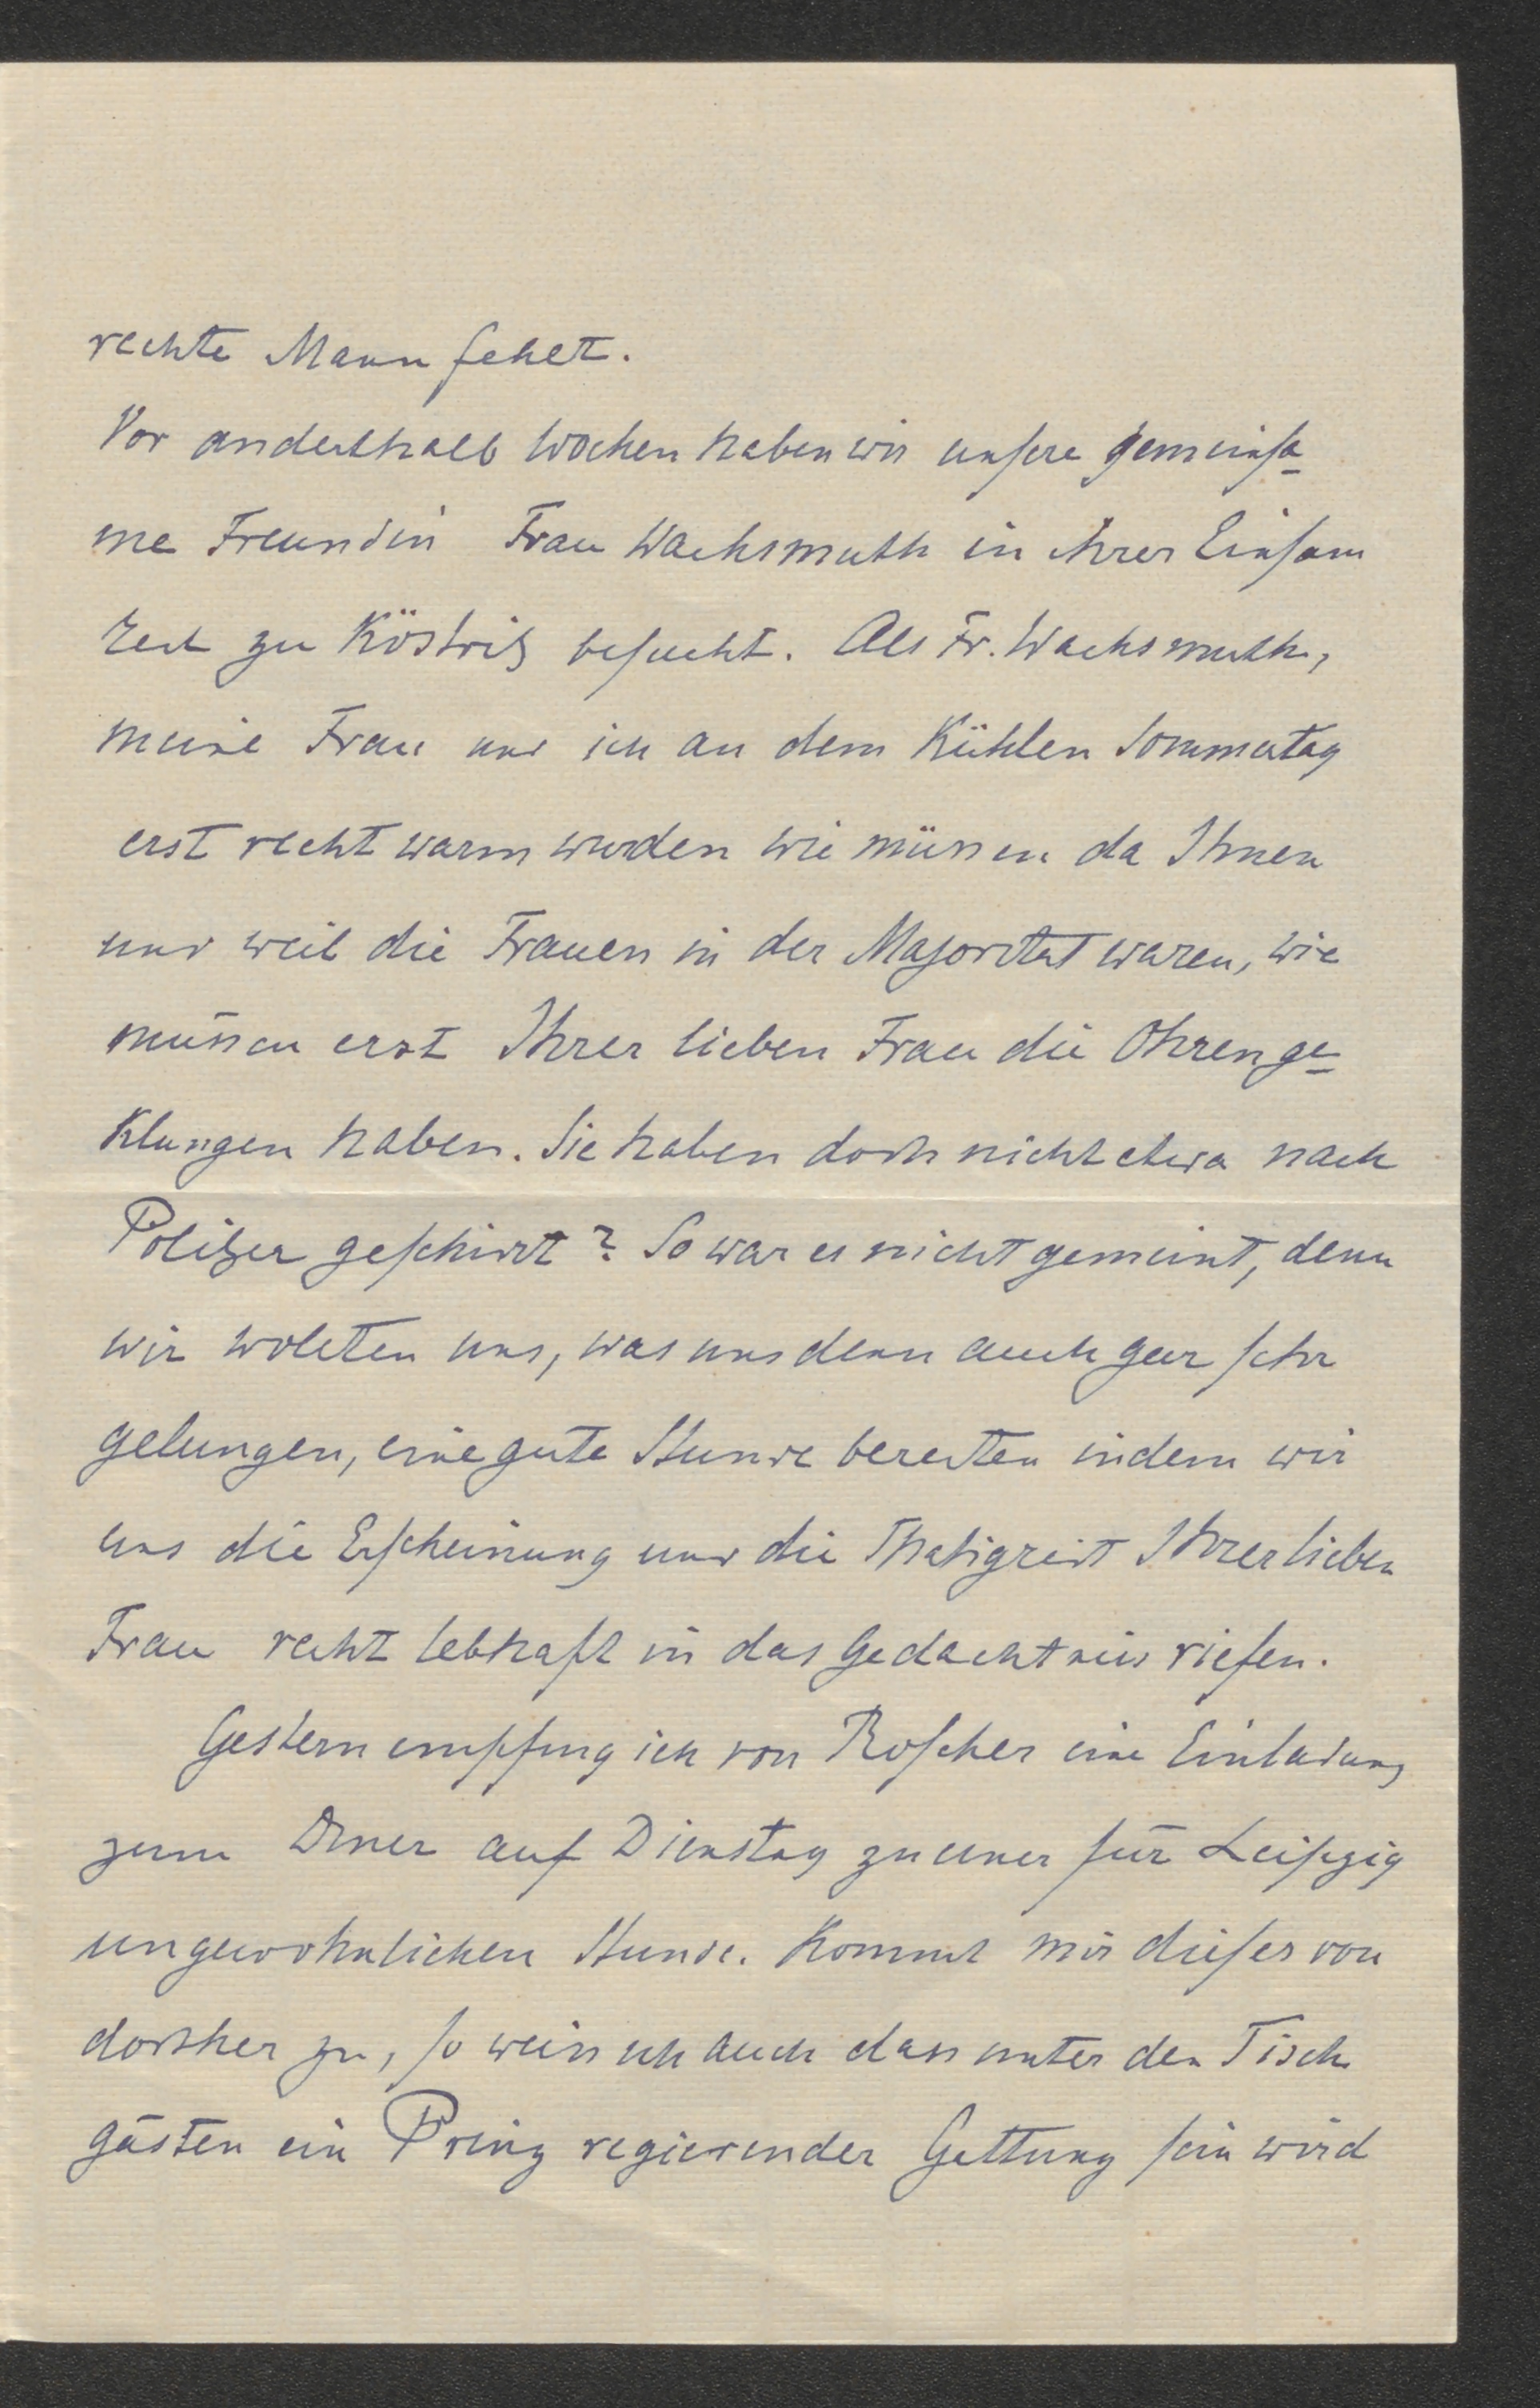 rechte Mann fehlt.
Vor anderthalb Wochen haben wir unsere gemeinsa-
me Freundin Frau Wachsmuth in ihrer Einsam
keit zu Köstritz besucht. Als Fr. Wachsmuth,
meine Frau und ich an dem kühlen Sommertag
erst recht warm wurden wie müssen da Ihnen
und weil die Frauen in der Majorität waren, wie
müssen erst Ihrer lieben Frau die Ohren ge-
klungen haben. Sie haben doch nicht etwa nach
Politzer geschickt? So war es nicht gemeint, denn
wir wollten uns, was uns denn auch gar sehr
gelungen, eine gute Stunde bereiten indem wir
uns die Erscheinung und die Thatigkeit Ihrer lieben
Frau recht lebhaft in das Gedachtniss riefen.
Gestern empfing ich von Roscher eine Einladung
zum Diner auf Dienstag zu einer für Leipzig
ungewohnlichen Stunde. Kommt mir dieses von
dorther zu, so weiss ich auch dass unter den Tisch
gästen ein Prinz regierender Gattung sein wird